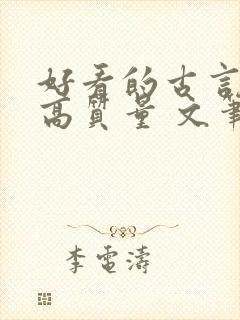 好看的古言
高質量 文筆
李電濤